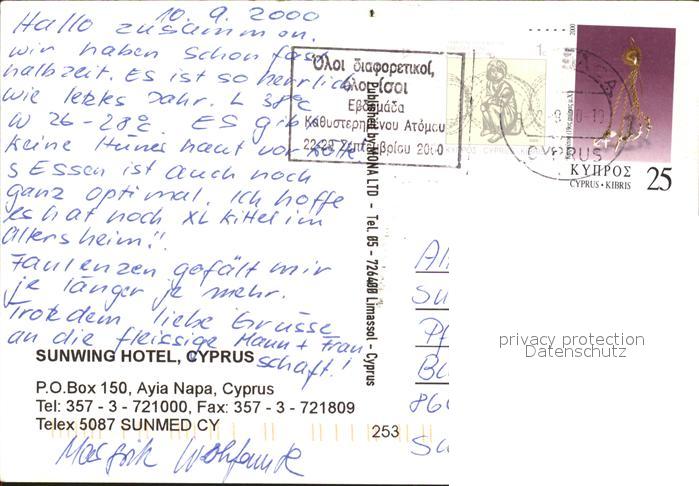 10.9.2000
Hallo zusammen.
wir haben schon fast
halbzeit. Es ist so herrlich
wie letztes Jahr. L 38°c
W 26-28°c. ES gibt
keine Hunes haut vor kälte
s Essen ist auch noch
ganz optimal. Ich hoffe
es hat noch XL kittel im
altersheim!!
Faulenzen gefält mir
je länger je mehr.
Trotzdem liebe Grüsse
an die fleissige Mann + Frau
schaft!
SUNWING HOTEL, CYPRUS
P.O.Box 150, Ayia Napa, Cyprus
Tel: 357 - 3 - 721000, Fax: 357 - 3 - 721809
Telex 5087 SUNMED CY
253
Published by MONA LTD - Tel. 05 - 726400 Limassol - Cyprus
Όλοι διαφορετικοί,
όλοι ίσοι
Εβδομάδα
Καθυστερημένου Ατόμου
22-29 Σεπτεμβρίου 2000
CYPRUS
2000
ΚΥΠΡΟΣ
CYPRUS • KIBRIS
25
Su
Pf
860
Su
privacy protection
Datenschutz